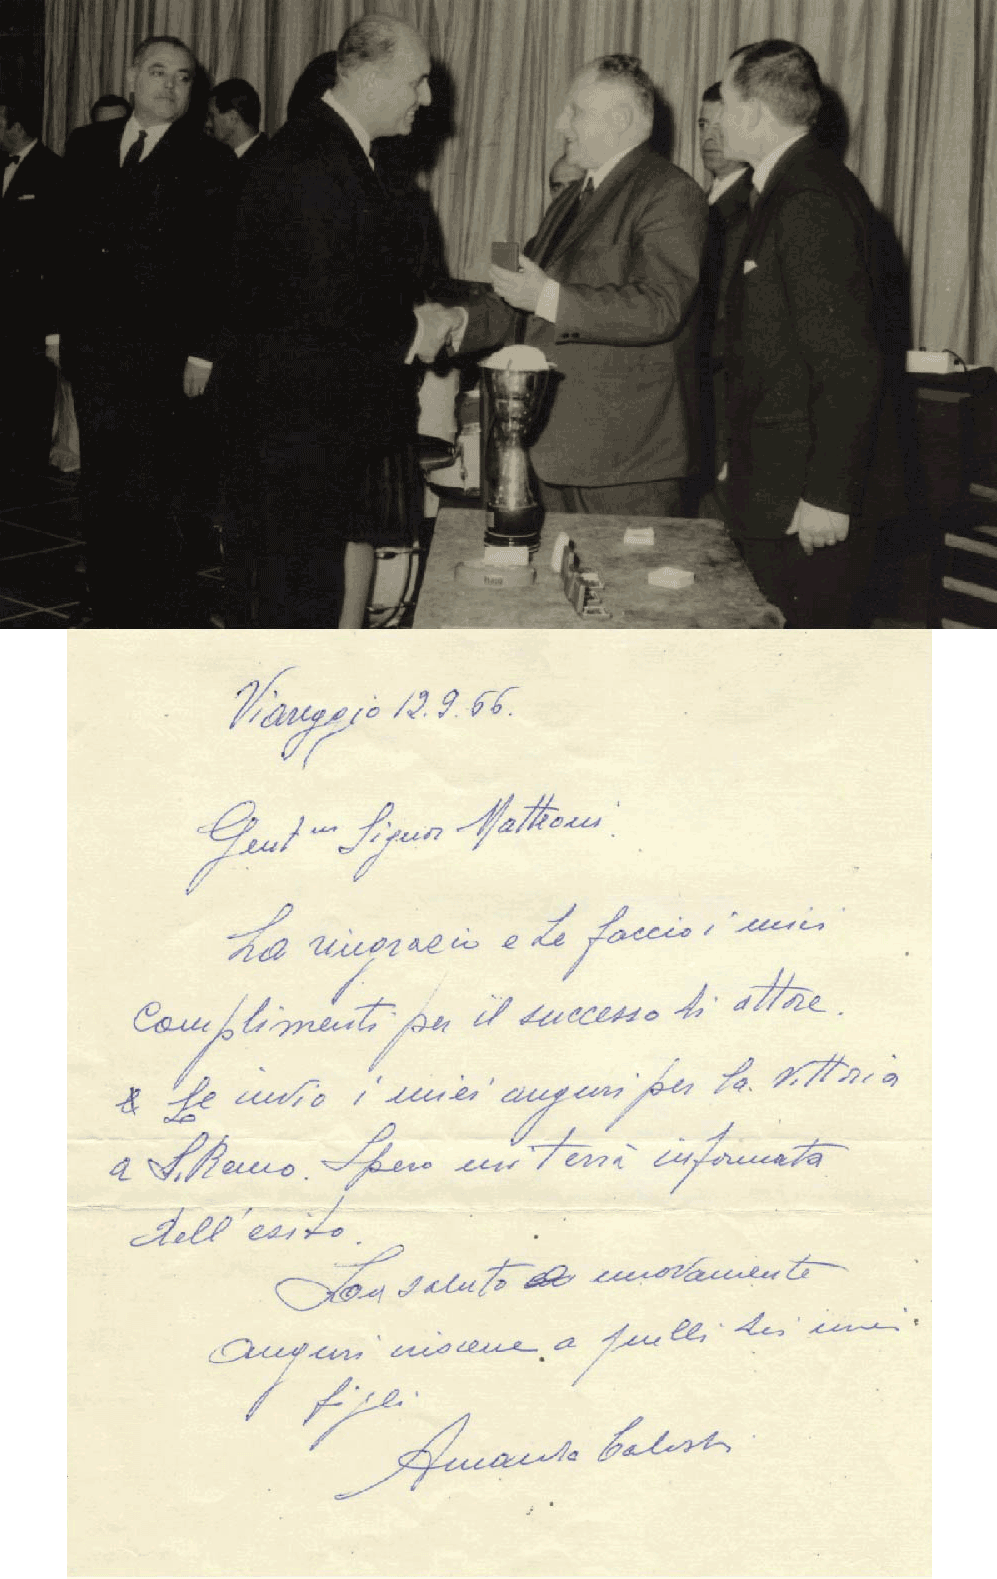 Viareggio 12.9.66.
Gent.mo Signor Matteoni.
La ringrazio e Le faccio i miei
complimenti per il successo di attore.
Le invio i miei auguri per la vittoria
a S. Remo. Spero mi terrà informata
dell'esito.
La saluto nuovamente
auguri insieme a quelli dei miei
figli
Amanda